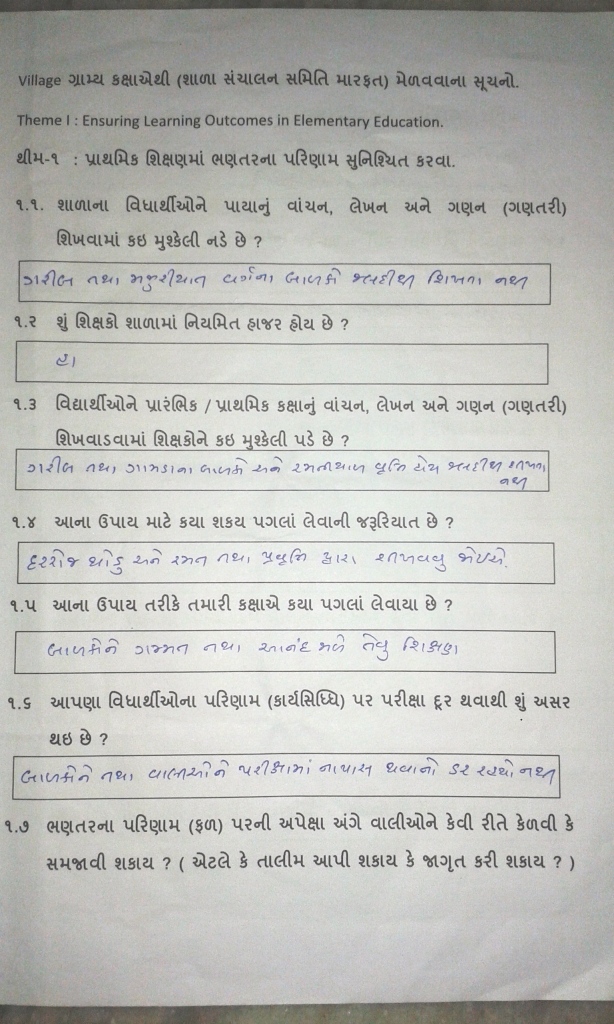 Village ગ્રામ્ય કક્ષાએથી (શાળા સંચાલન સમિતિ મારફત) મેળવવાના સૂચનો.
Theme I : Ensuring Learning Outcomes in Elementary Education.
થીમ-૧ : પ્રાથમિક શિક્ષણમાં ભણતરના પરિણામ સુનિશ્ચિત કરવા.
૧.૧. શાળાના વિધાર્થીઓને પાયાનું વાંચન, લેખન અને ગણન (ગણતરી)
શિખવામાં કઇ મુશ્કેલી નડે છે ?
ગરીબ તથા મજુરીયાત વર્ગના બાળકો જલદીથી શિખતા નથી
૧.૨ શું શિક્ષકો શાળામાં નિયમિત હાજર હોય છે ?
હા
૧.૩ વિદ્યાર્થીઓને પ્રારંભિક / પ્રાથમિક કક્ષાનું વાંચન, લેખન અને ગણન (ગણતરી)
શિખવાડવામાં શિક્ષકોને કઇ મુશ્કેલી પડે છે ?
ગરીબ તથા ગામડાના બાળકો અને રમતીયાળ વૃતિ જલદીથી શીખતા
નથી
૧.૪ આના ઉપાય માટે કયા શકય પગલાં લેવાની જરૂરિયાત છે ?
દરરોજ થોડુ અને રમત તથા પ્રવૃતિ દ્વારા શીખવવુ જોઇએ.
૧.૫ આના ઉપાય તરીકે તમારી કક્ષાએ કયા પગલાં લેવાયા છે ?
બાળકોને ગમ્મત તથા આનંદ મળે તેવુ શિક્ષણ
૧.૬ આપણા વિધાર્થીઓના પરિણામ (કાર્યસિધ્ધિ) પર પરીક્ષા દૂર થવાથી શું અસર
થઇ છે ?
બાળકોને તથા વાલીઓને પરીક્ષામાં નાપાસ થવાનો ડર રહયો નથી
૧.૭ ભણતરના પરિણામ (ફળ) પરની અપેક્ષા અંગે વાલીઓને કેવી રીતે કેળવી કે
સમજાવી શકાય ? ( એટલે કે તાલીમ આપી શકાય કે જાગૃત કરી શકાય ? )